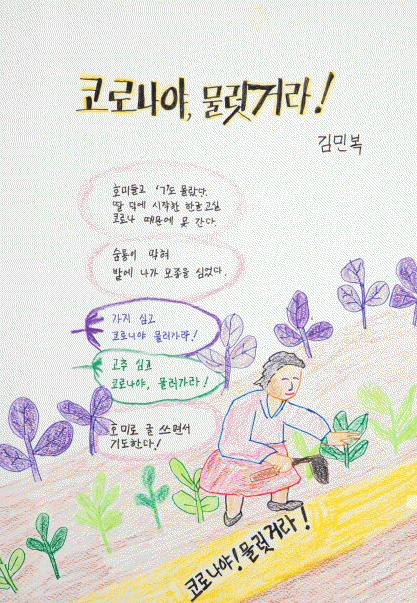 코로나야, 물럿거라!
김민복
호미들고 'ㄱ'도 몰랐다.
딸 덕에 시작한 한글교실
코로나 때문에 못 간다.
숨통이 막혀
밭에 나가 모종을 심었다.
가지 심고
코로나야 물러가라!
고추 심고
코로나야, 물러가라!
호미로 글 쓰면서
기도한다!
코로나야! 물럿거라!